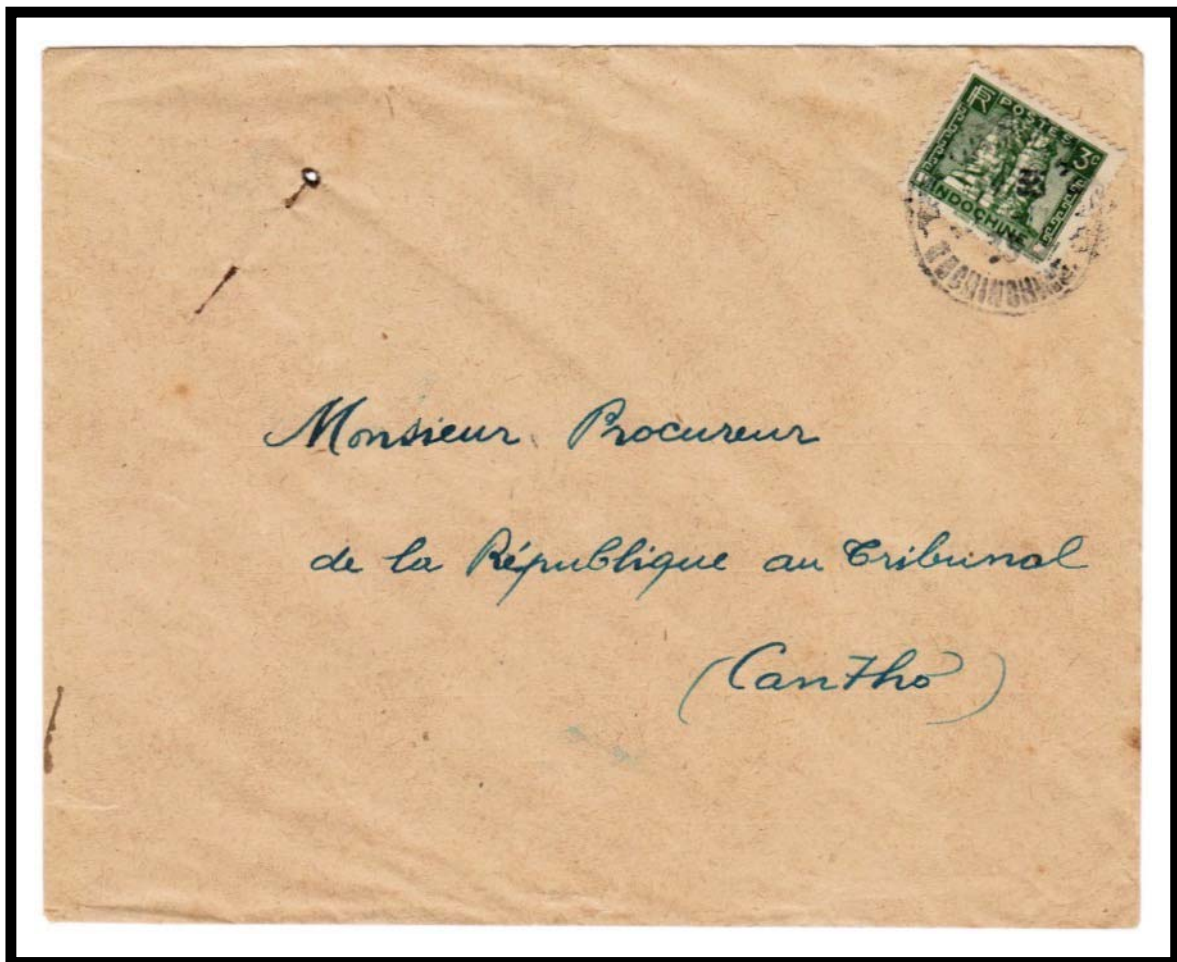 RF POSTES 3c
INDOCHINE
COCHINCHINE
Monsieur Procureur
de la République au Tribunal
(Cantho)